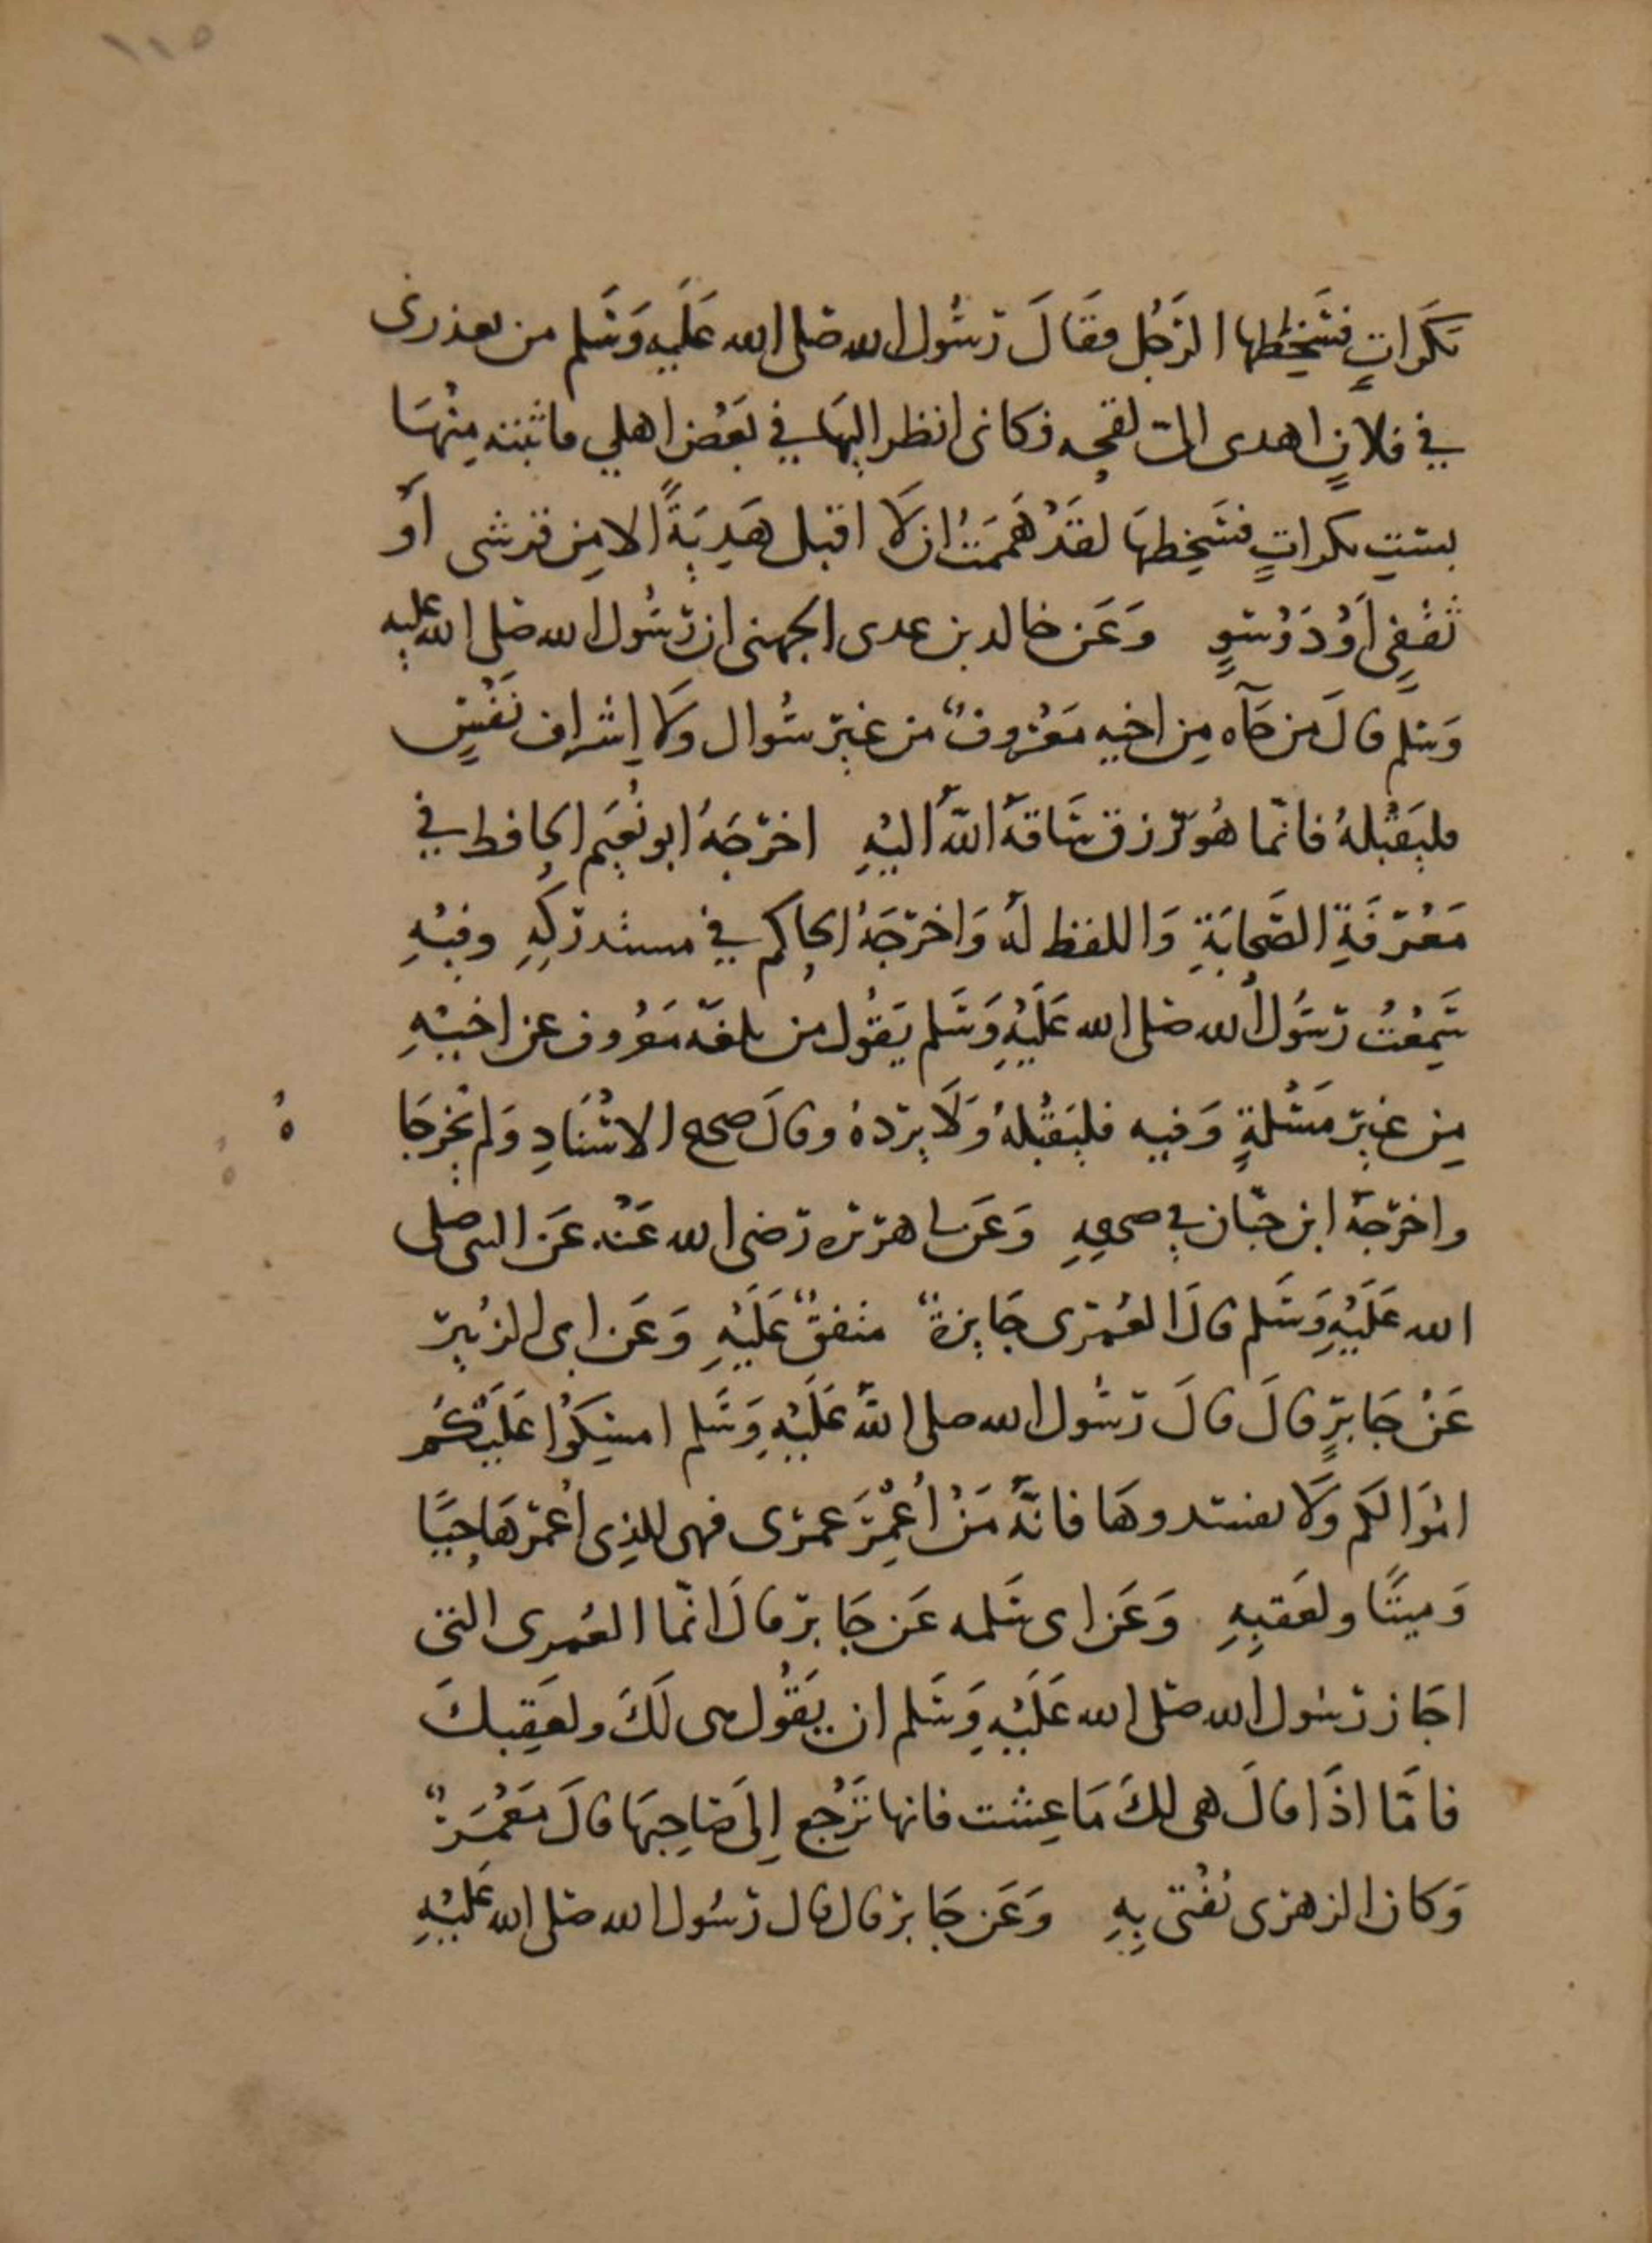 ١١٥
بَكَراتٍ فتَسَخَّطها الرَجُل فقَالَ رَسُول الله صَلى الله عَلَيهِ وَسَلم من يعذرنى
في فلانٍ اهدى اليّ لقحه فكانى انظر اليهَا في بَعْض اهلي فاثبته مِنْهَا
بسِتِ بكراتٍ فتَسَخِطهَا لقَدْ هَمَمَتُ ان لَا اقبل هَدِيَةً الا مِن قرشى أَو
ثقَفِى أَوْ دَوْسىٍ وَعَن خالد بن عدى الجهنى ان رَسُول الله صَلى الله عليه
وَسَلم قالَ من جَآه مِن اخيه مَعْرُوفٌ من غيرِ سُوال وَلا اِشراف نَفْسٍ
فليَقْبَلهُ فانّما هُوَ رزق سَاقهُ اللهُ اليْهِ اخرَجَهُ ابو نُعَيَم الحافظ في
مَعْرفَةِ الصَّحابَةِ وَاللفظ لهُ وَاخرَجَهُ الحاكم في مستدرَكِهِ وفيْهِ
سَمِعْتُ رَسَوُلَ الله صَلى الله عَلَيْهِ وَسَلم يَقُول من بلغهُ مَعروف عن اخيْهِ
مِن غيرِ مَسْلةٍ وَفيه فليَقْبَلهُ وَلَا يردهُ وقالَ صحيح الاسْنَادِ وَلم يُخرجَا
هُ
واخرَجهُ ابن حبّان في صحيحِهِ وَعَن ابى هريره رَضى الله عَنْه عَن النبى صلى
الله عَلَيْهِ وَسَلم قالَ العُمْرَى جَايزةٌ متفقٌ عَلَيْهِ وَعَن ابى الزُبير
عَنْ جَابرٍ قالَ قالَ رَسُول الله صلى اللهُ عَلَيْهِ وَسَلم امسِكُوا عَلَيْكُم
امْوَالكم وَلَا تفسدوهَا فانّهُ مَنْ أُعْمِرَ عمرَى فهى للذِى أُعْمرَهَا حَيًّا
وَميتًا ولعَقبِهِ وَعَن ابى سَلمه عَن جَابر قالَ انّما العُمرى التى
اجَاز رَسُول الله صَلى الله عَلَيْهِ وَسَلم ان يَقُول هى لَكَ ولعَقِبكَ
فامّا اذَا قالَ هى لكَ مَا عِشت فانها تَرْجع اِلَى صَاحِبهَا قالَ مَعْمَرٌ
وَكان الزهرَى يُفْتى بِهِ وَعَن جَابر قال قال رَسُول الله صَلى الله عَلَيْهِ